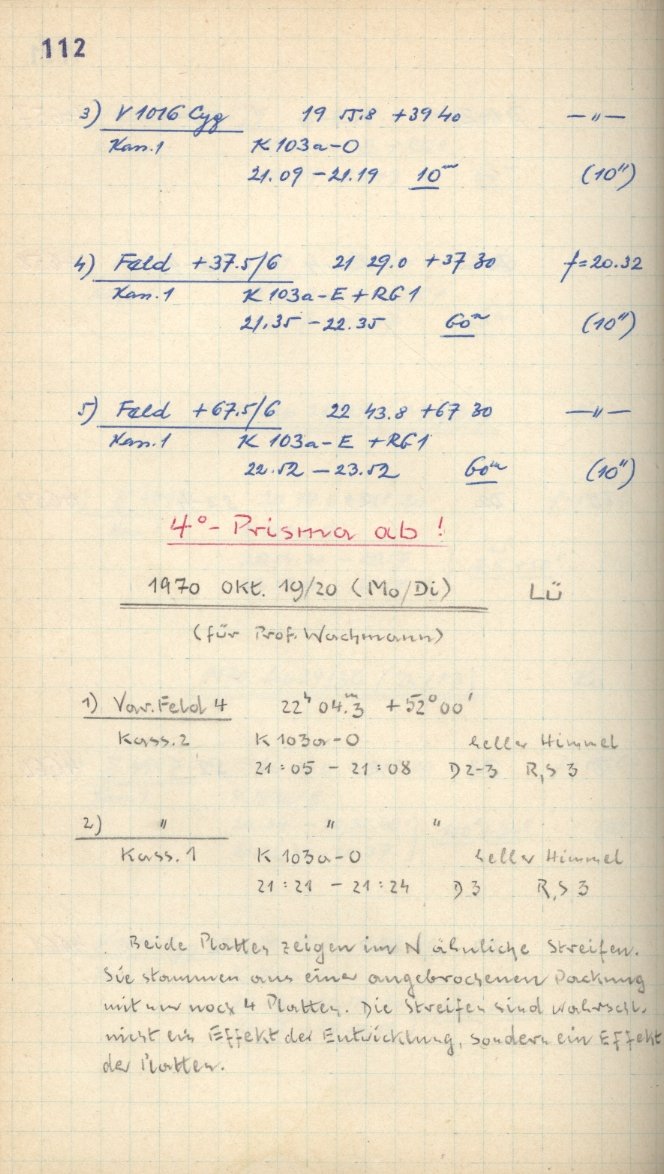 112
3) V 1016 Cyg 19 55.8 +39 40 —"—
Kass.1 K 103a-O
21.09 – 21.19 10ᵐ (10")
4) Feld +37.5/6 21 29.0 +37 30 f=20.32
Kass.1 K 103a-E + RG1
21.35 – 22.35 60ᵐ (10")
5) Feld +67.5/6 22 43.8 +67 30 —"—
Kass.1 K 103a-E + RG1
22.52 – 23.52 60ᵐ (10")
4°-Prisma ab!
1970 Okt. 19/20 (Mo/Di) LÜ
(für Prof. Wachmann)
1) Var. Feld 4 22ʰ 04.ᵐ3 +52°00'
Kass.2 K 103a-O heller Himmel
21:05 – 21:08 D2-3 R,S 3
2) " " "
Kass.1 K 103a-O heller Himmel
21:21 – 21:24 D3 R,S 3
Beide Platten zeigen im N ähnliche Streifen.
Sie stammen aus einer angebrochenen Packung
mit nur noch 4 Platten. Die Streifen sind wahrschl.
nicht ein Effekt der Entwicklung, sondern ein Effekt
der Platten.